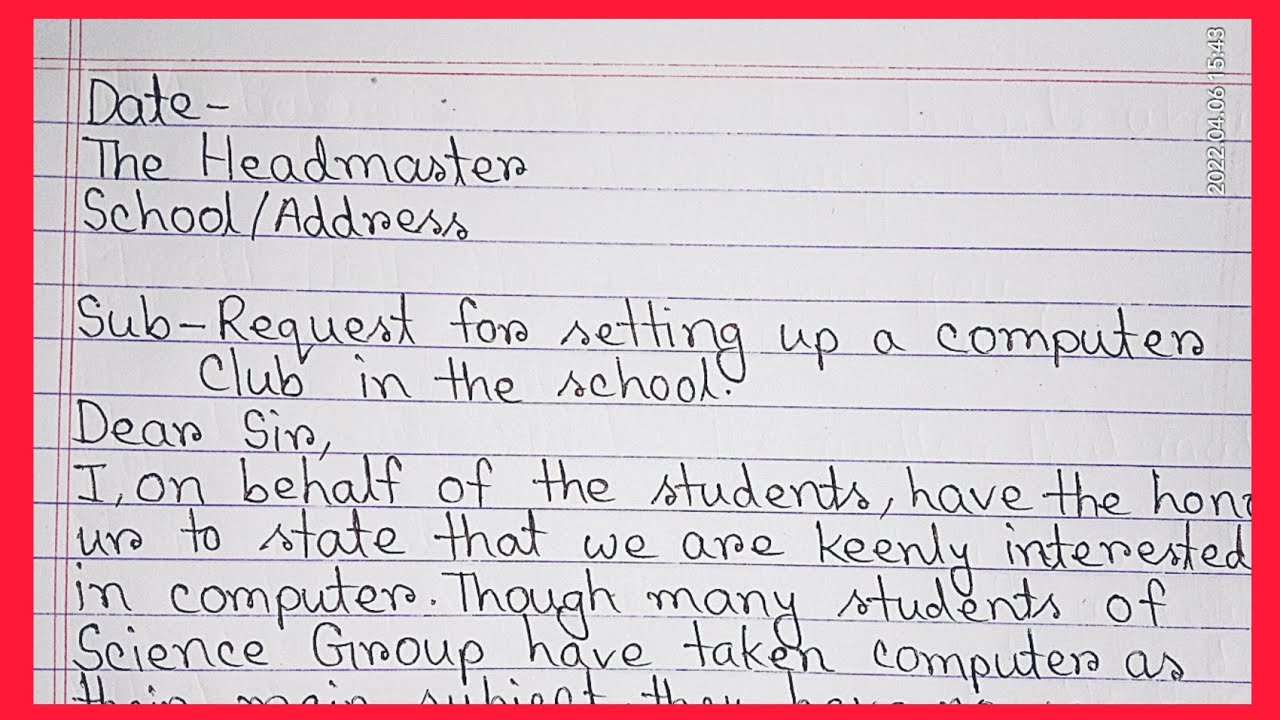 2022.04.06 15:43
Date-
The Headmaster
School/Address
Sub-Request for setting up a computer
Club in the school.
Dear Sir,
I, on behalf of the students, have the hono
ur to state that we are keenly interested
in computer. Though many students of
Science Group have taken computer as
their main subject they have no